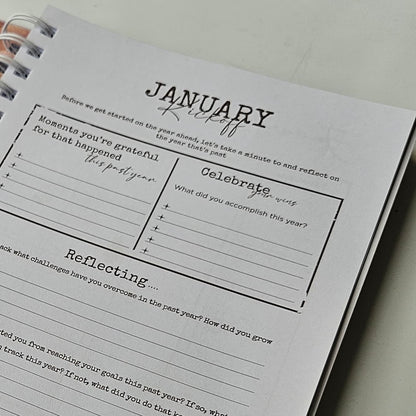 JANUARY
Kickoff
Before we get started on the year ahead, let's take a minute to and reflect on
the year that's past
Moments you're grateful
for that happened
this past year
Celebrate
your wins
What did you accomplish this year?
Reflecting....
ack what challenges have you overcome in the past year? How did you grow
ted you from reaching your goals this past year? If so, what
s track this year? If not, what did you do that k